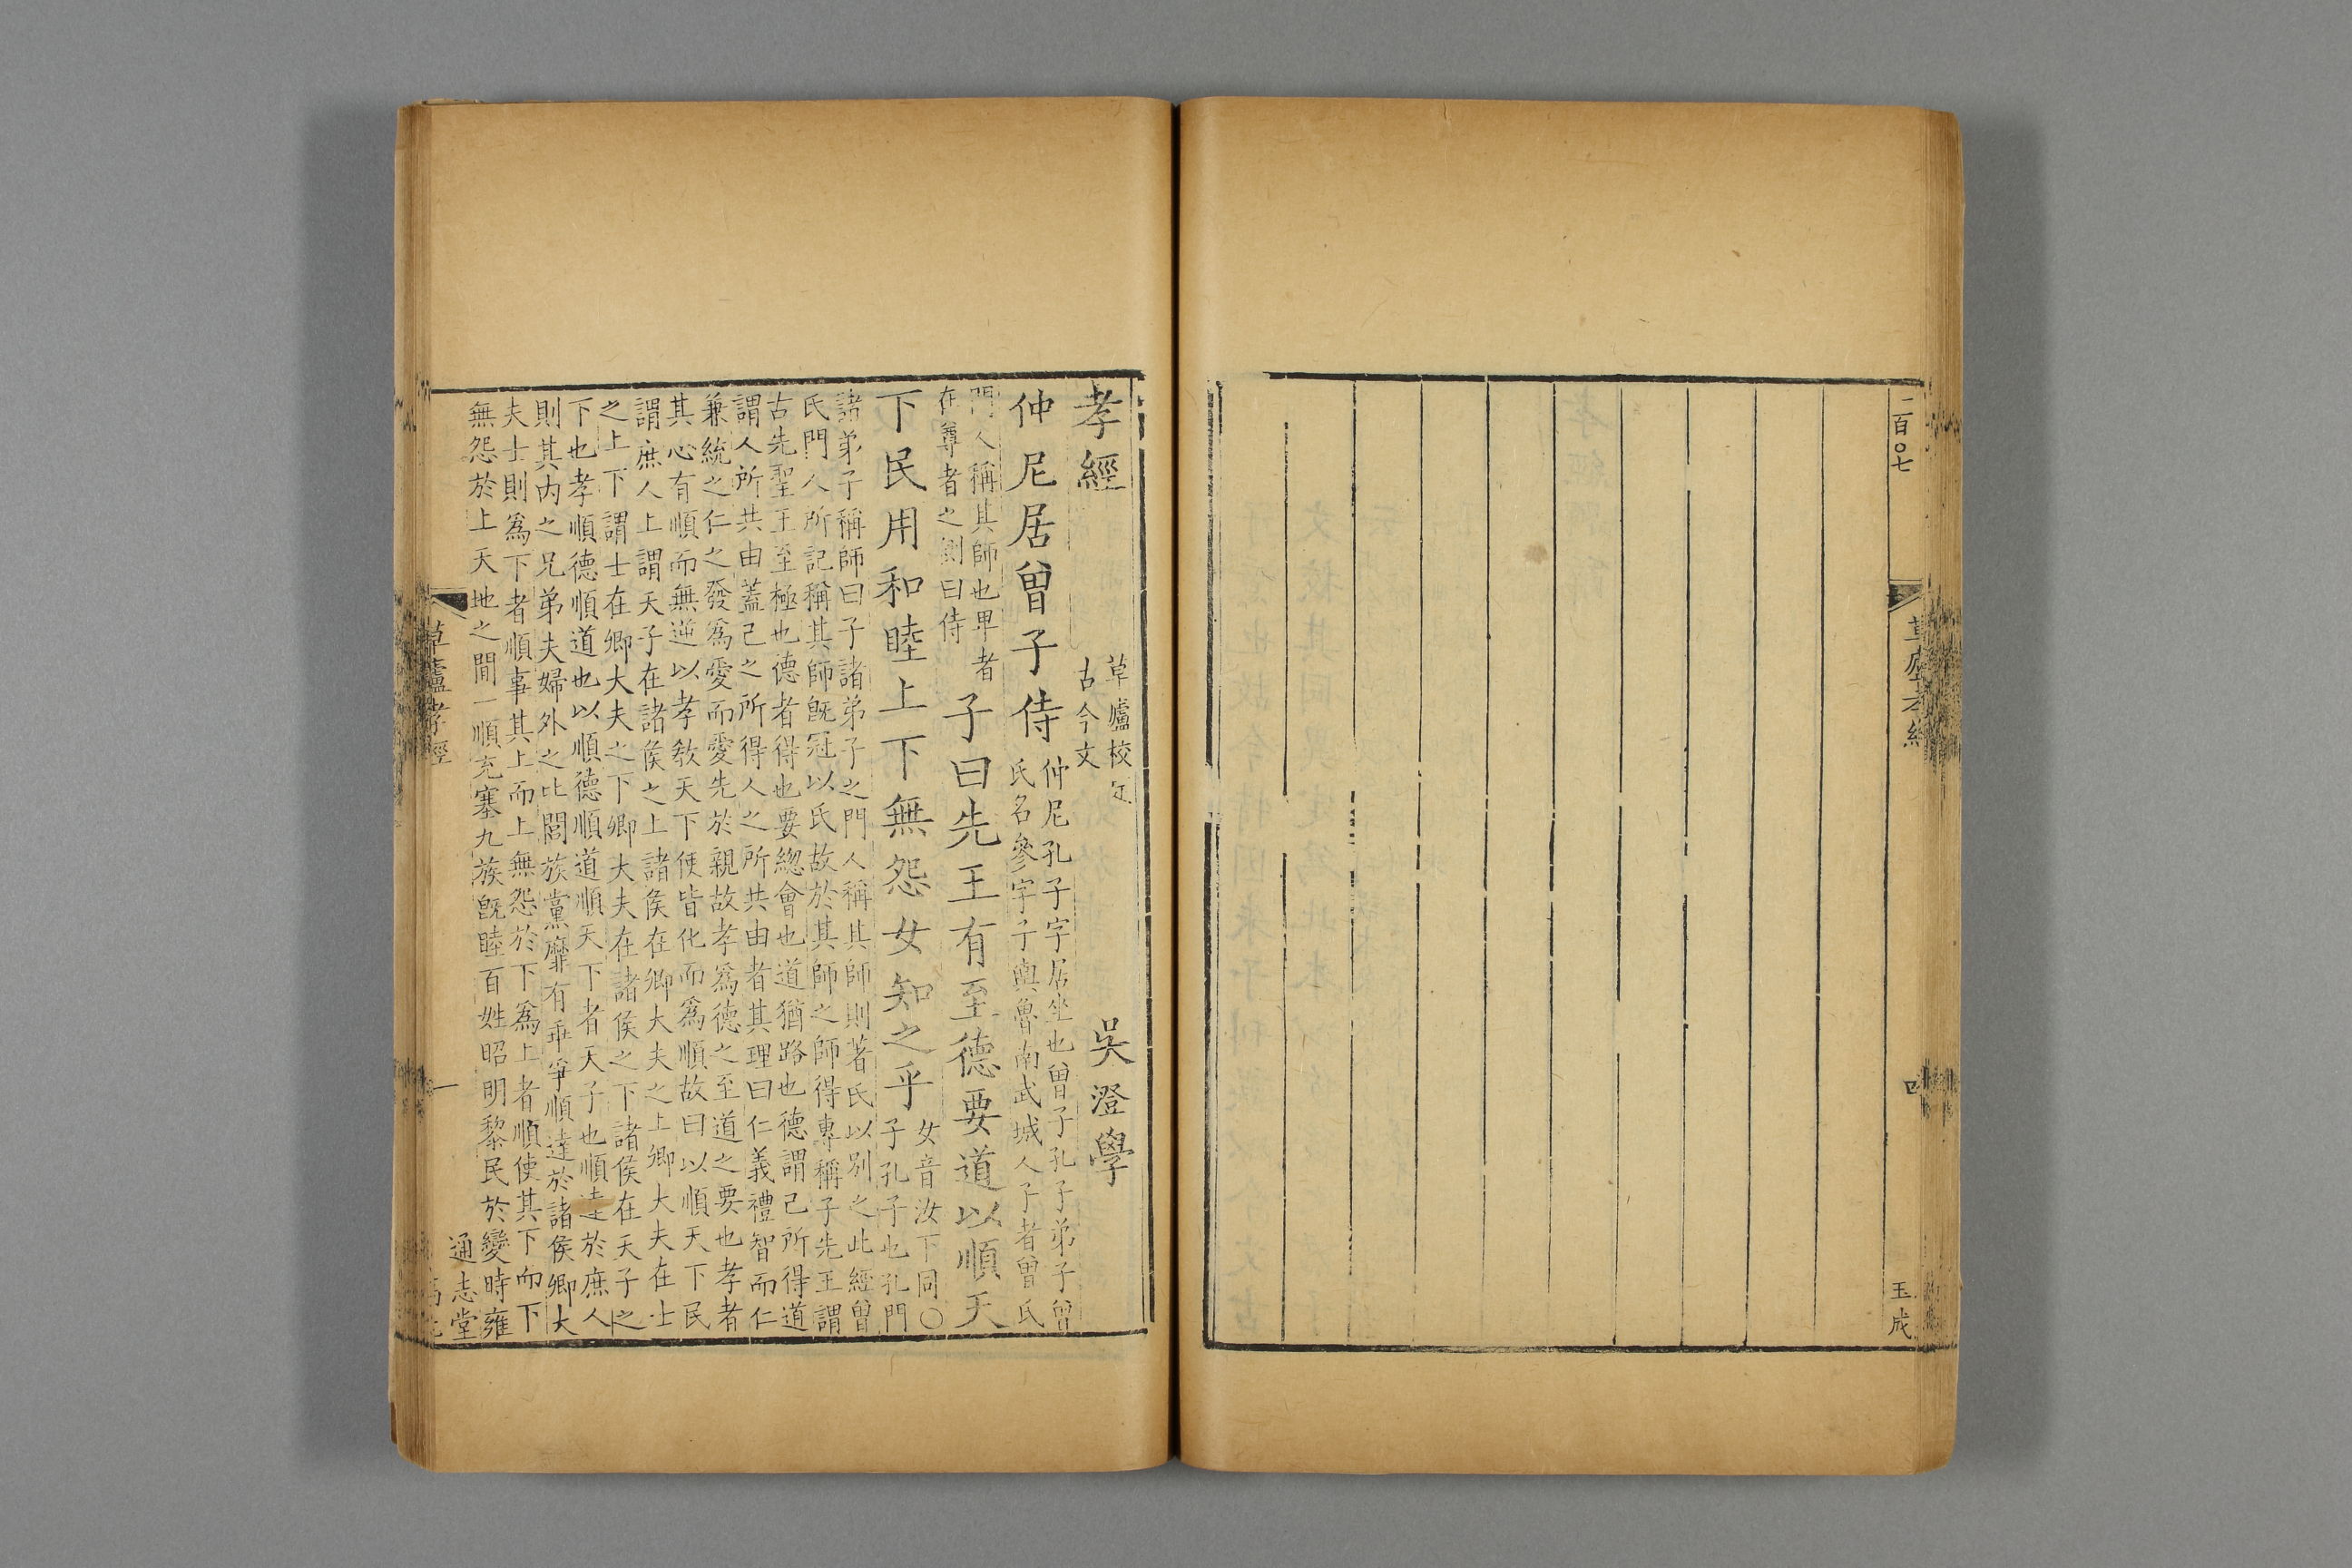 二百〇七
草廬孝經
四
玉成
孝經
草廬校定
古今文
吳澄學
仲尼居曾子侍
仲尼孔子字居坐也曾子孔子弟子曾
氏名參字子輿魯南武城人子者曾氏
門人稱其師也卑者
在尊者之側曰侍
子曰先王有至德要道以順天
下民用和睦上下無怨女知之乎
女音汝下同〇
子孔子也孔門
諸弟子稱師曰子諸弟子之門人稱其師則著氏以別之此經曾
氏門人所記稱其師旣冠以氏故於其師之師得專稱子先王謂
古先聖王至極也德者得也要緫會也道猶路也德謂己所得道
謂人所共由蓋己之所得人之所共由者其理曰仁義禮智而仁
兼統之仁之發爲愛而愛先於親故孝爲德之至道之要也孝者
其心有順而無逆以孝敎天下使皆化而爲順故曰以順天下民
謂庶人上謂天子在諸侯之上諸侯在卿大夫之上卿大夫在士
之上下謂士在卿大夫之下卿大夫在諸侯之下諸侯在天子之
下也孝順德順道也以順德順道順天下者天子也順達於庶人
則其內之兄弟夫婦外之比閭族黨靡有乖爭順達於諸侯卿大
夫士則爲下者順事其上而上無怨於下爲上者順使其下而下
無怨於上天地之間一順充塞九族旣睦百姓昭明黎民於變時雍
草廬孝經
一
通志堂